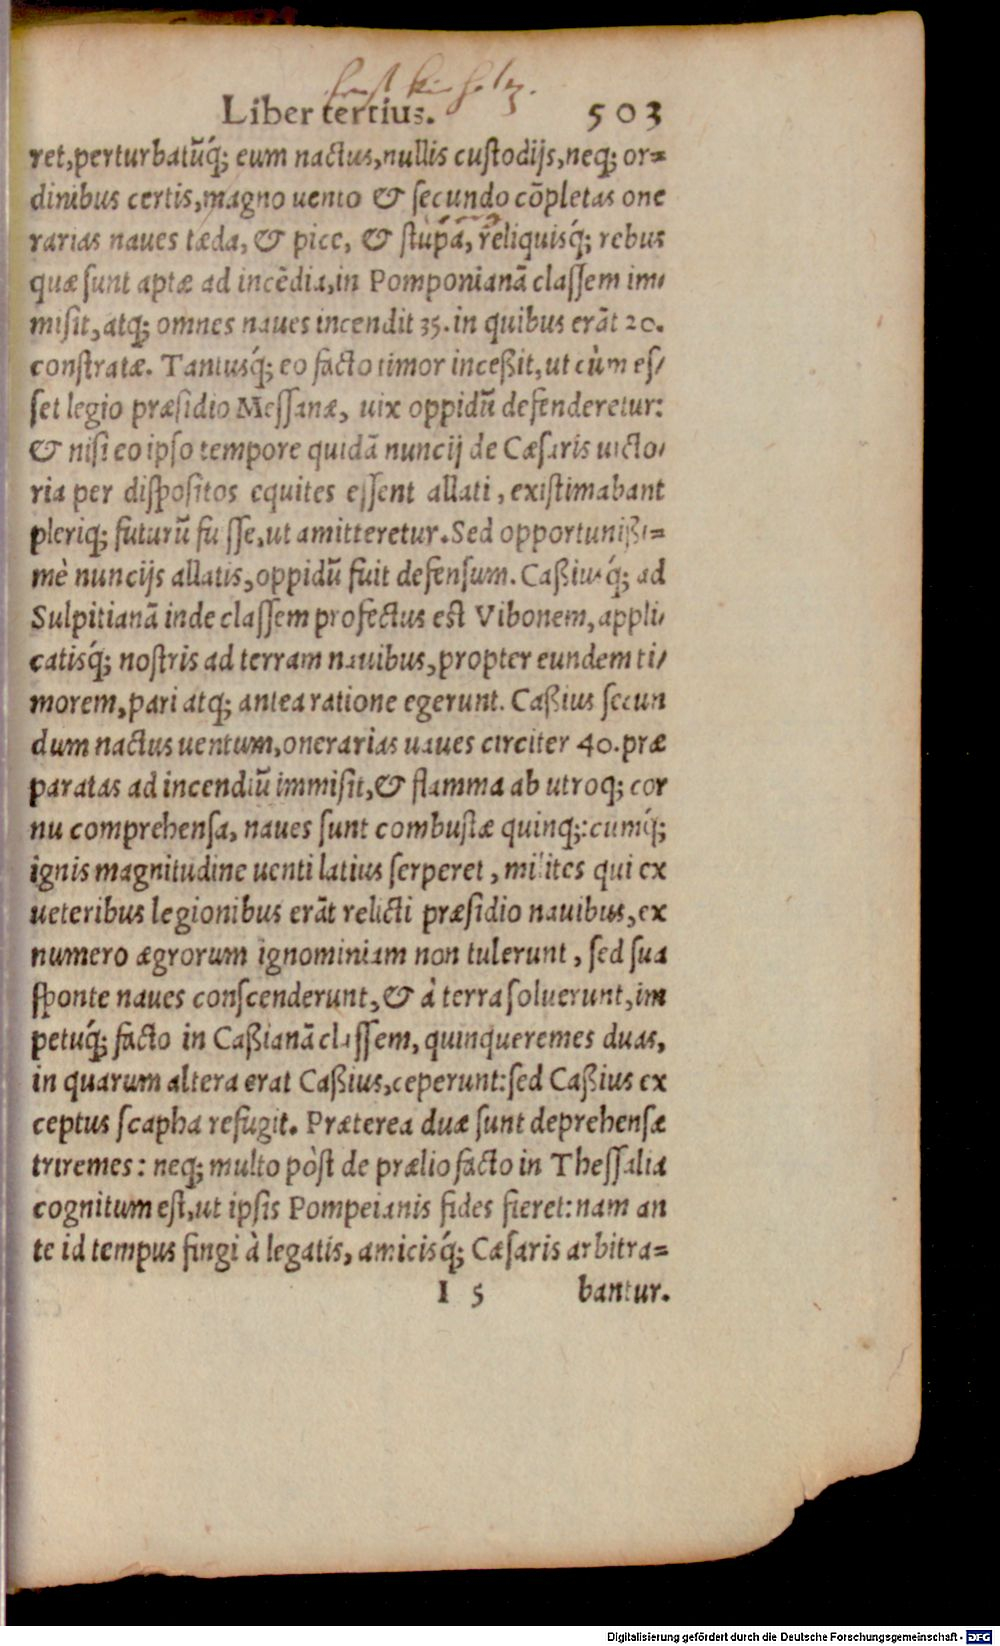 Liber tertius. 503
ret, perturbatũq́; eum nactus, nullis custodijs, neq; or=
dinibus certis, magno uento & secundo cõpletas one
rarias naues tæda, & pice, & stupa, reliquisq́; rebus
quæ sunt aptæ ad incẽdia, in Pomponianã classem im/
misit, atq; omnes naues incendit 35. in quibus erãt 20.
constratæ. Tantusq́; eo facto timor inceßit, ut cùm es/
set legio præsidio Messanæ, uix oppidũ defenderetur:
& nisi eo ipso tempore quidã nuncij de Cæsaris uicto/
ria per dispositos equites essent allati, existimabant
pleriq; futurũ fuisse, ut amitteretur. Sed opportunißi=
mè nuncijs allatis, oppidũ fuit defensum. Caßiusq́; ad
Sulpitianã inde classem profectus est Vibonem, appli/
catisq́; nostris ad terram nauibus, propter eundem ti/
morem, pari atq; antea ratione egerunt. Caßius secun
dum nactus uentum, onerarias uaues circiter 40. præ
paratas ad incendiũ immisit, & flamma ab utroq; cor
nu comprehensa, naues sunt combustæ quinq;: cumq́;
ignis magnitudine uenti latius serperet, milites qui ex
ueteribus legionibus erãt relicti præsidio nauibus, ex
numero ægrorum ignominiam non tulerunt, sed sua
sponte naues conscenderunt, & à terra soluerunt, im
petuq́; facto in Caßianã classem, quinqueremes duas,
in quarum altera erat Caßius, ceperunt: sed Caßius ex
ceptus scapha refugit. Præterea duæ sunt deprehensæ
triremes: neq; multo pòst de prælio facto in Thessalia
cognitum est, ut ipsis Pompeianis fides fieret: nam an
te id tempus fingi à legatis, amicisq́; Cæsaris arbitra=
I 5 bantur.
Digitalisierung gefördert durch die Deutsche Forschungsgemeinschaft - DFG